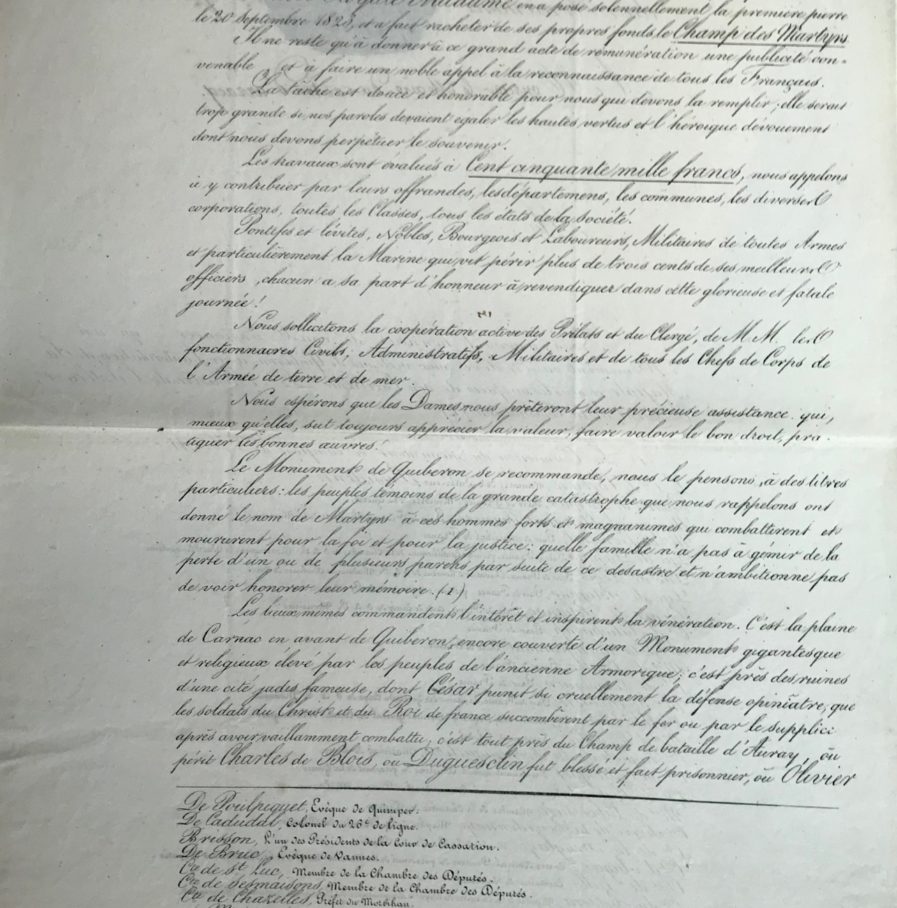 Madame en a posé solennellement la première pierre
le 20 Septembre 1823, et a fait racheter de ses propres fonds le Champ des Martyrs
Il ne reste qu'à donner à ce grand acte de rémunération une publicité con-
venable et à faire un noble appel à la reconnaissance de tous les Français.
La tâche est douce et honorable pour nous qui devons la remplir; elle serait
trop grande si nos paroles devaient égaler les hautes vertus et l'héroïque dévouement
dont nous devons perpétuer le souvenir.
Les travaux sont évalués à Cent cinquante mille francs, nous appelons
à y contribuer par leurs offrandes, les départemens, les communes, les diverses
corporations, toutes les Classes, tous les états de la Société.
Pontifes et lévites, Nobles, Bourgeois et Laboureurs, Militaires de toutes Armes
et particulièrement la Marine qui vit périr plus de trois cents de ses meilleurs
officiers, chacun a sa part d'honneur à revendiquer dans cette glorieuse et fatale
journée!
Nous sollicitons la coopération active des Prélats et du Clergé, de M.M. les
fonctionnaires Civils, Administratifs, Militaires et de tous les Chefs de Corps de
l'Armée de terre et de mer.
Nous espérons que les Dames nous prêteront leur précieuse assistance qui,
mieux qu'elles, sut toujours apprécier la valeur, faire valoir le bon droit, pra-
tiquer les bonnes œuvres!
Le Monument de Quiberon se recommande, nous le pensons, à des titres
particuliers: les peuples témoins de la grande catastrophe que nous rappelons ont
donné le nom de Martyrs à ces hommes forts et magnanimes qui combattirent et
moururent pour la foi et pour la justice: quelle famille n'a pas à gémir de la
perte d'un ou de plusieurs parens par suite de ce désastre et n'ambitionne pas
de voir honorer leur mémoire. (1)
Les lieux mêmes commandent l'intérêt et inspirent la vénération. C'est la plaine
de Carnac en avant de Quiberon, encore couverte d'un Monument gigantesque
et religieux élevé par les peuples de l'ancienne Armorique; c'est près des ruines
d'une cité jadis fameuse, dont César punit si cruellement la défense opiniâtre, que
les soldats du Christ et du Roi de france succombèrent par le fer ou par le supplice
après avoir vaillamment combattu, c'est tout près du Champ de bataille d'Auray, où
périt Charles de Blois, où Duguesclin fut blessé et fait prisonnier, où Olivier
De Poulpiquet, Evêque de Quimper.
De Cadudal, Colonel du 26e de ligne.
Brisson, l'un des Présidents de la Cour de Cassation.
De Bruc, Evêque de Vannes.
Cte de St Luc, Membre de la Chambre des Députés.
Cte de Desmaisons, Membre de la Chambre des Députés.
Cte de Chazelles, Préfet du Morbihan.